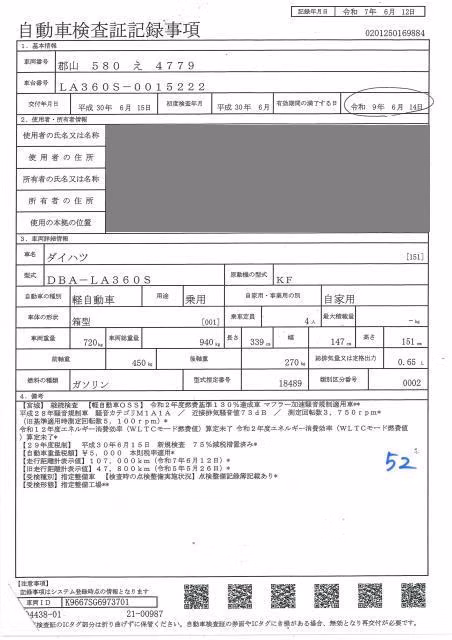 記録年月日 令和 7年 6月 12日
自動車検査証記録事項
0201250169884
1．基本情報
車両番号 郡山 580 え 4779
車台番号 LA360S－0015222
交付年月日 平成30年 6月 15日 初度検査年月 平成30年 6月 有効期間の満了する日 令和 9年 6月 14日
2．使用者・所有者情報
使用者の氏名又は名称
使用者の住所
所有者の氏名又は名称
所有者の住所
使用の本拠の位置
3．車両詳細情報
車名 ダイハツ [151]
型式 DBA－LA360S 原動機の型式 KF
自動車の種別 軽自動車 用途 乗用 自家用・事業用の別 自家用
車体の形状 箱型 [001] 乗車定員 4人 最大積載量 －kg
車両重量 720kg 車両総重量 940kg 長さ 339cm 幅 147cm 高さ 151cm
前軸重 450kg 後軸重 270kg 総排気量又は定格出力 0.65 L
燃料の種類 ガソリン 型式指定番号 18489 類別区分番号 0002
4．備考
【宮城】 継続検査 【軽自動車OSS】 令和2年度燃費基準130％達成車 マフラー加速騒音規制適用車**
平成28年騒音規制車 騒音カテゴリM1A1A ／ 近接排気騒音値73dB ／ 測定回転数3，750rpm*
(旧基準適用時測定回転数5，100rpm)*
令和12年度エネルギー消費効率（WLTCモード燃費値）算定未了 令和2年度エネルギー消費効率（WLTCモード燃費値
）算定未了*
【29年度規制】 平成30年6月15日 新規検査 75％減税措置済み*
【自動車重量税額】¥5，000 本則税率適用*
【走行距離計表示値】107，000km（令和7年6月12日）*
【旧走行距離計表示値】47，800km（令和5年5月26日）*
【受検種別】指定整備車 【検査時の点検整備実施状況】点検整備記録簿記載あり*
【受検形態】指定整備工場**
52
【注意事項】
記録事項はシステム登録時点の情報となります
車両ID K9667SG6973701
04438-01 21-00987
検査証のICタグ部分は折り曲げずに保管ください。自動車検査証の券面やICタグに占積がある場合、無効となり再交付が必要です。